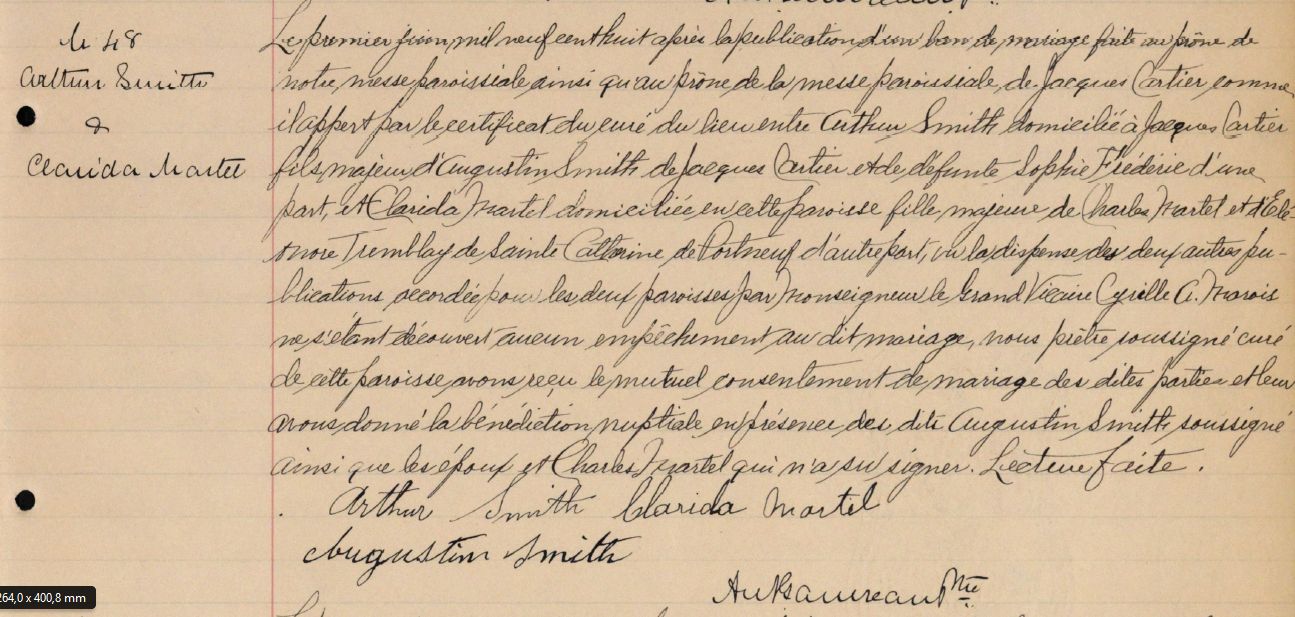 M 48
Arthur Smith
&
Clarida Martel
Le premier juin mil neuf cent huit après la publication d'un ban de mariage faite au prône de
notre messe paroissiale ainsi qu'au prône de la messe paroissiale de Jacques Cartier comme
il appert par le certificat du curé du lieu entre Arthur Smith domicilié à Jacques Cartier
fils majeur d'Augustin Smith de Jacques Cartier et de défunte Sophie Fréderic d'une
part, et Clarida Martel domiciliée en cette paroisse fille majeure de Charles Martel et d'Elé-
onore Tremblay de Sainte Catherine de Portneuf d'autre part, vu la dispense des deux autres pu-
blications accordée pour les deux paroisses par Monseigneur le Grand Vicaire Cyrille A. Marois
ne s'étant découvert aucun empêchement au dit mariage, nous prêtre soussigné curé
de cette paroisse avons reçu le mutuel consentement de mariage des dites parties et leur
avons donné la bénédiction nuptiale en présence des dits Augustin Smith soussigné
ainsi que les époux et Charles Martel qui n'a su signer. Lecture faite.
Arthur Smith Clarida Martel
Augustin Smith
Ptre
264,0 x 400,8 mm